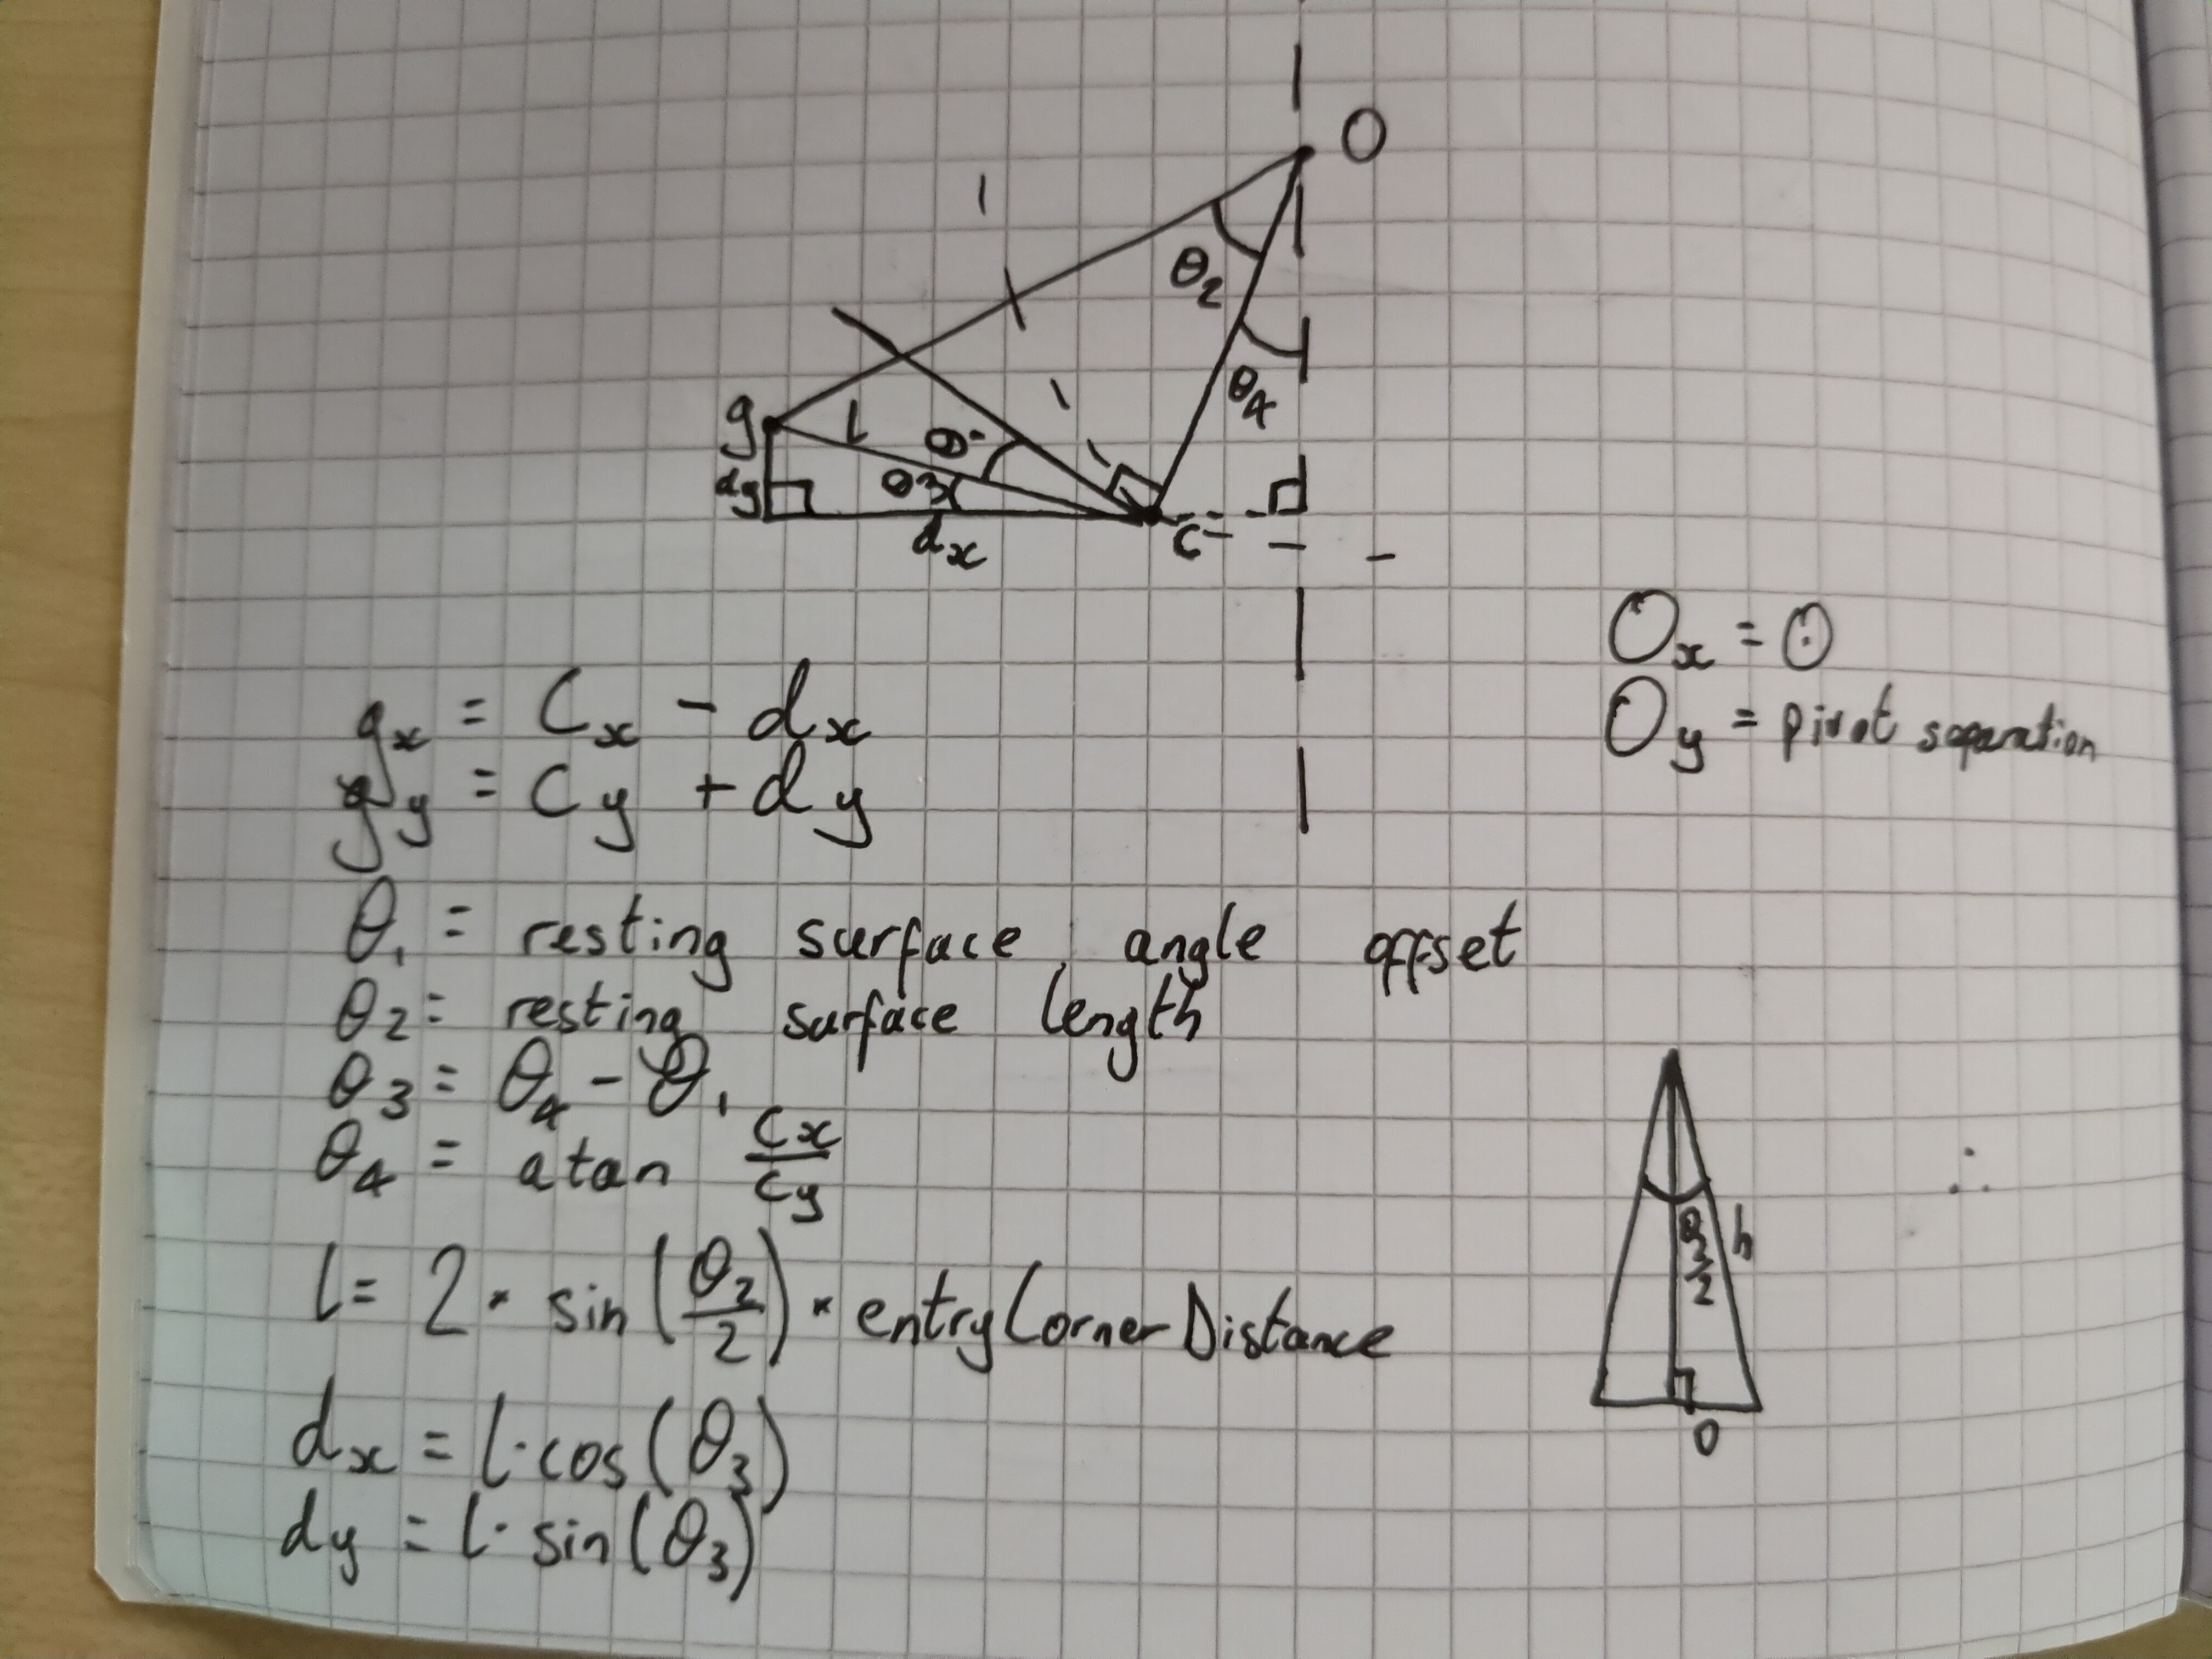 O
θ₂
θ₄
g
l
θ₁
θ₃
dy
dx
C
Ox = 0
Oy = pivot separation
gx = Cx - dx
gy = Cy + dy
θ₁ = resting surface angle offset
θ₂ = resting surface length
θ₃ = θ₄ - θ₁
θ₄ = atan Cx/Cy
l = 2 · sin(θ₂/2) · entryCornerDistance
dx = l · cos(θ₃)
dy = l · sin(θ₃)
θ₂/2
h
o
∴